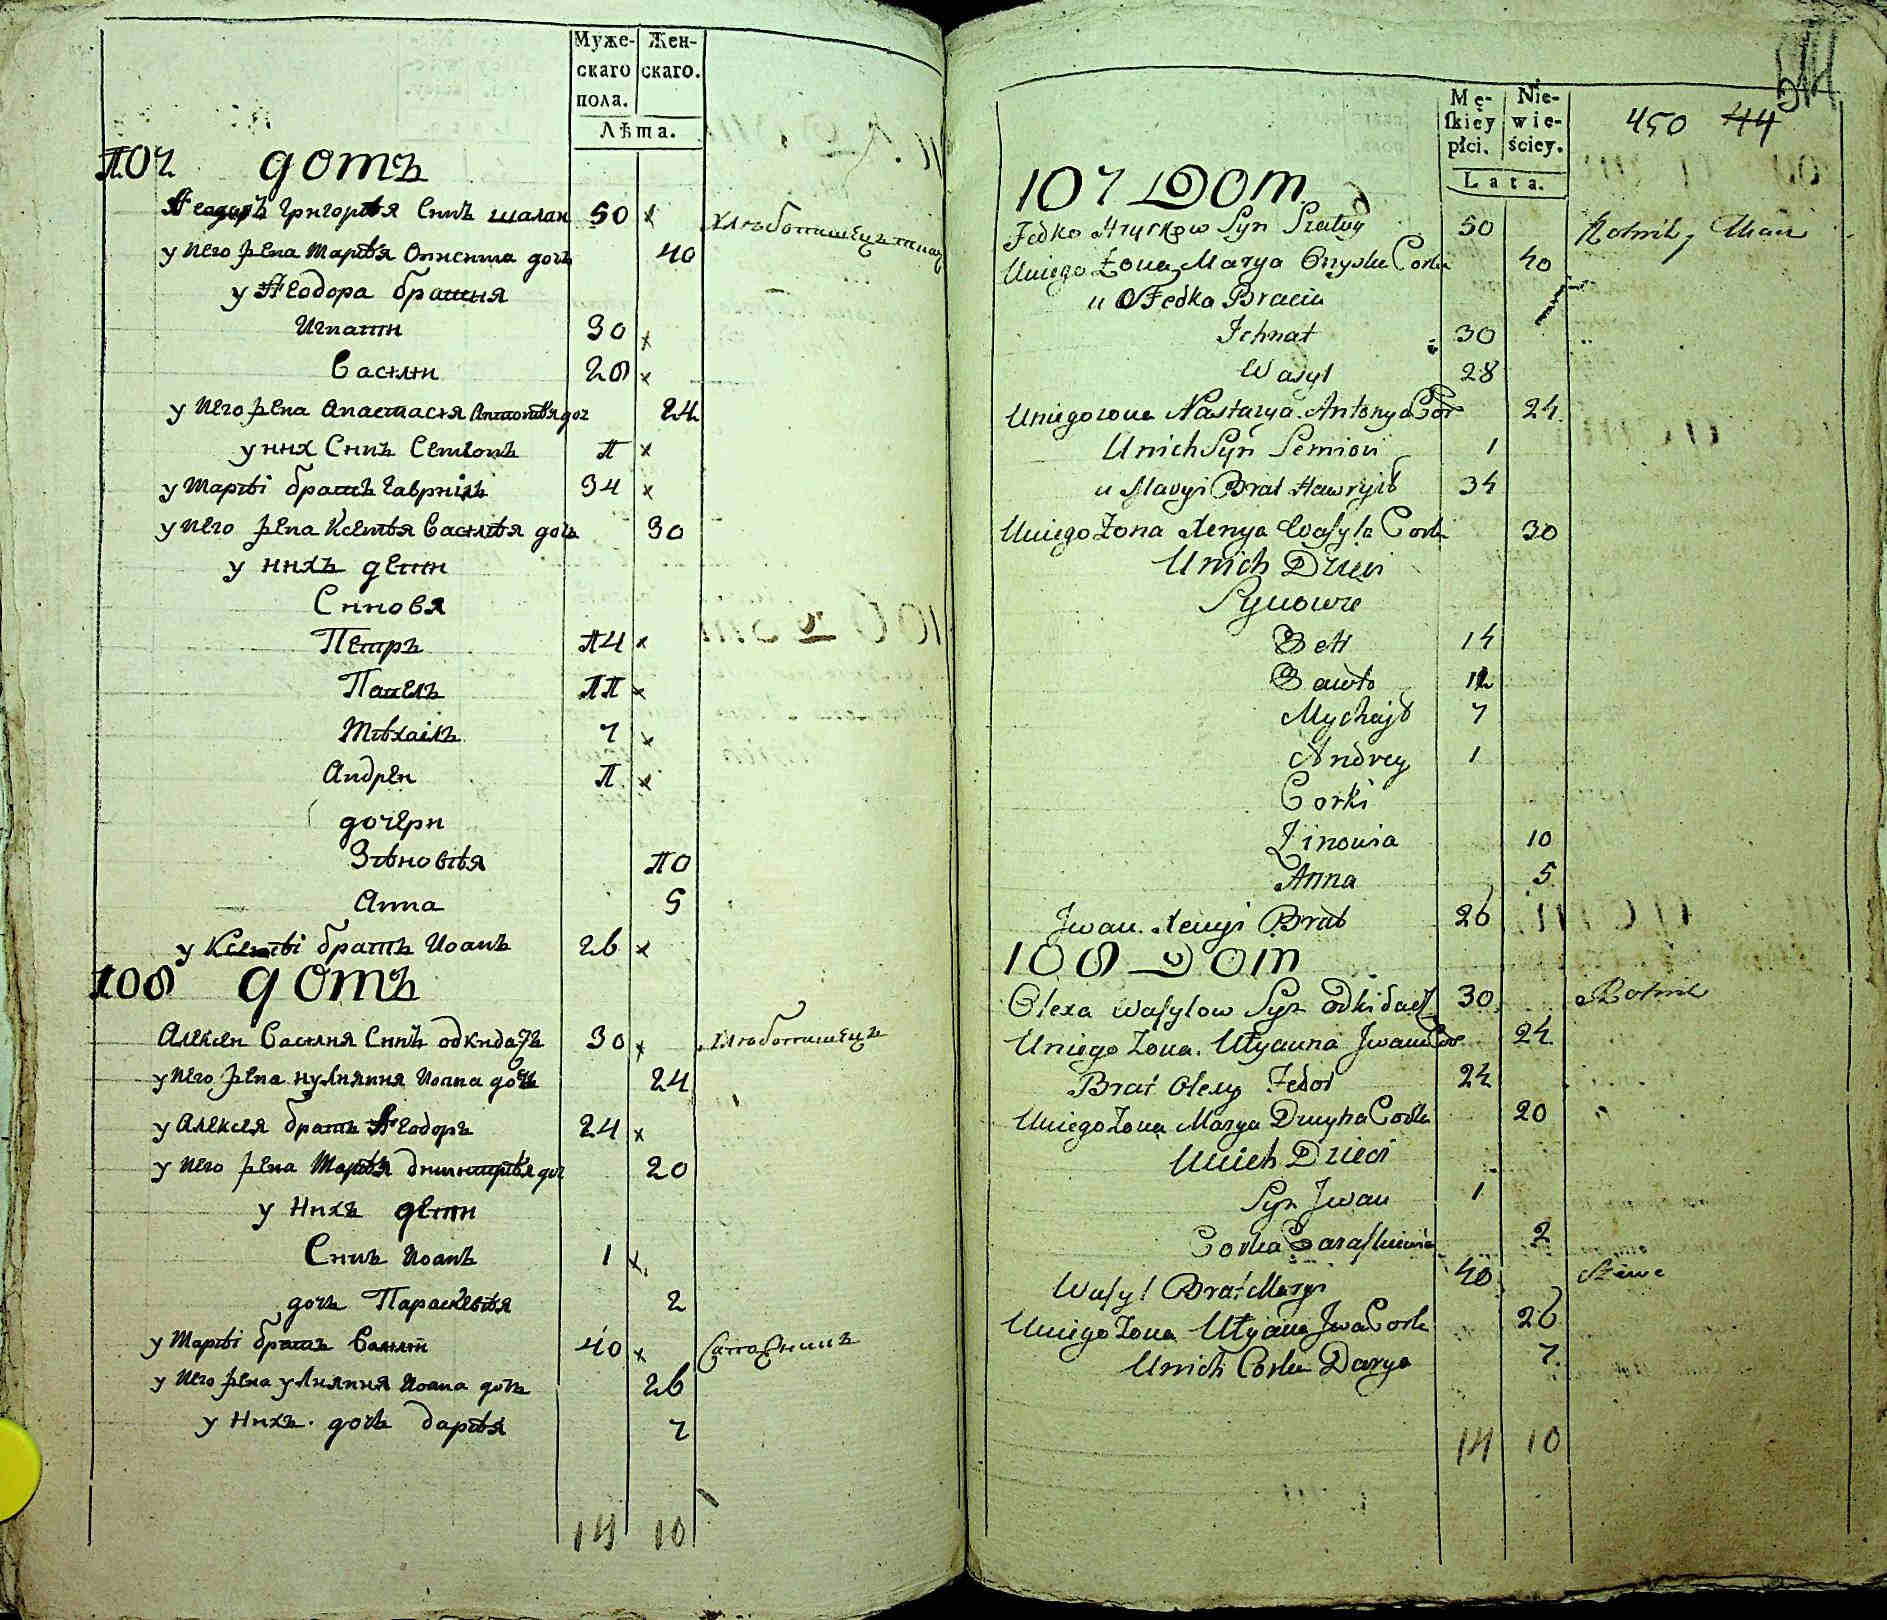 Муже-
скаго
пола.
Жен-
скаго.
Лѣта.
107 домъ
Ѳеодоръ Григорія Синъ шалап 50
у него жена Марія Онисима дочъ 40
у Ѳеодора братія
Игнати 30
Васили 28
у него жена Анастасія Антонія доч 24
у них Синъ Семіонъ 1
у Марії братъ Гавриілъ 34
у него жена Ксенія Василія дочъ 30
у нихъ дети
Синовя
Петръ 14
Павелъ 11
Михаилъ 7
Андреи 1
дочери
Зѣновія 10
Анна 5
у Ксенії братъ Иоанъ 26
108 домъ
Алексеи Василия Синъ одкидачъ 30 хлѣботишецъ
у него жена иулияния Иоана дочъ 24
у Алексея братъ Ѳеодоръ 24
у него жена Марія димитрія доч 20
у Нихъ дети
Синъ Иоанъ 1
дочъ Параскевія 2
у Марії братъ Васили 40 Сапожникъ
у него жена улияния Иоана дочъ 26
у Нихъ дочъ дарія 7
14 10
Mę-
ſkiey
płci.
Nie-
wie-
ściey.
Lata.
450 44
107 Dom
Fedko Hryckow Syn Szałay 50 Rolnik, Tkacz
Uniego Żona Marya Onyska Corka 40
u Fedka Bracia
Jchnat 30
Wasyl 28
Uniego zona Nastazya Antonya Cor 24
Unich Syn Semion 1
u Maryi Brat Hawryło 34
Uniego Zona Xenya Waſyla Corka 30
Unich Dzieci
Synowie
Petr 14
Pawło 12
Mychajło 7
Andrey 1
Corki
Zinowia 10
Anna 5
Jwan Xenyi Brat 26
108 Dom
Olexa Waſylow Syn Odkidacz 30 Rolnik
Uniego Zona Ulyanna Jwana Cor 24
Brat Olexy Fedor 24
Uniego Zona Marya Dmytra Corka 20
Unich Dzieci
Syn Jwan 1
Corka Paraſkiewia 2
Waſyl Brat Maryi 40 Szewc
Uniego Zona Ulyana Jwa Cork 26
Unich Corka Darya 7
14 10